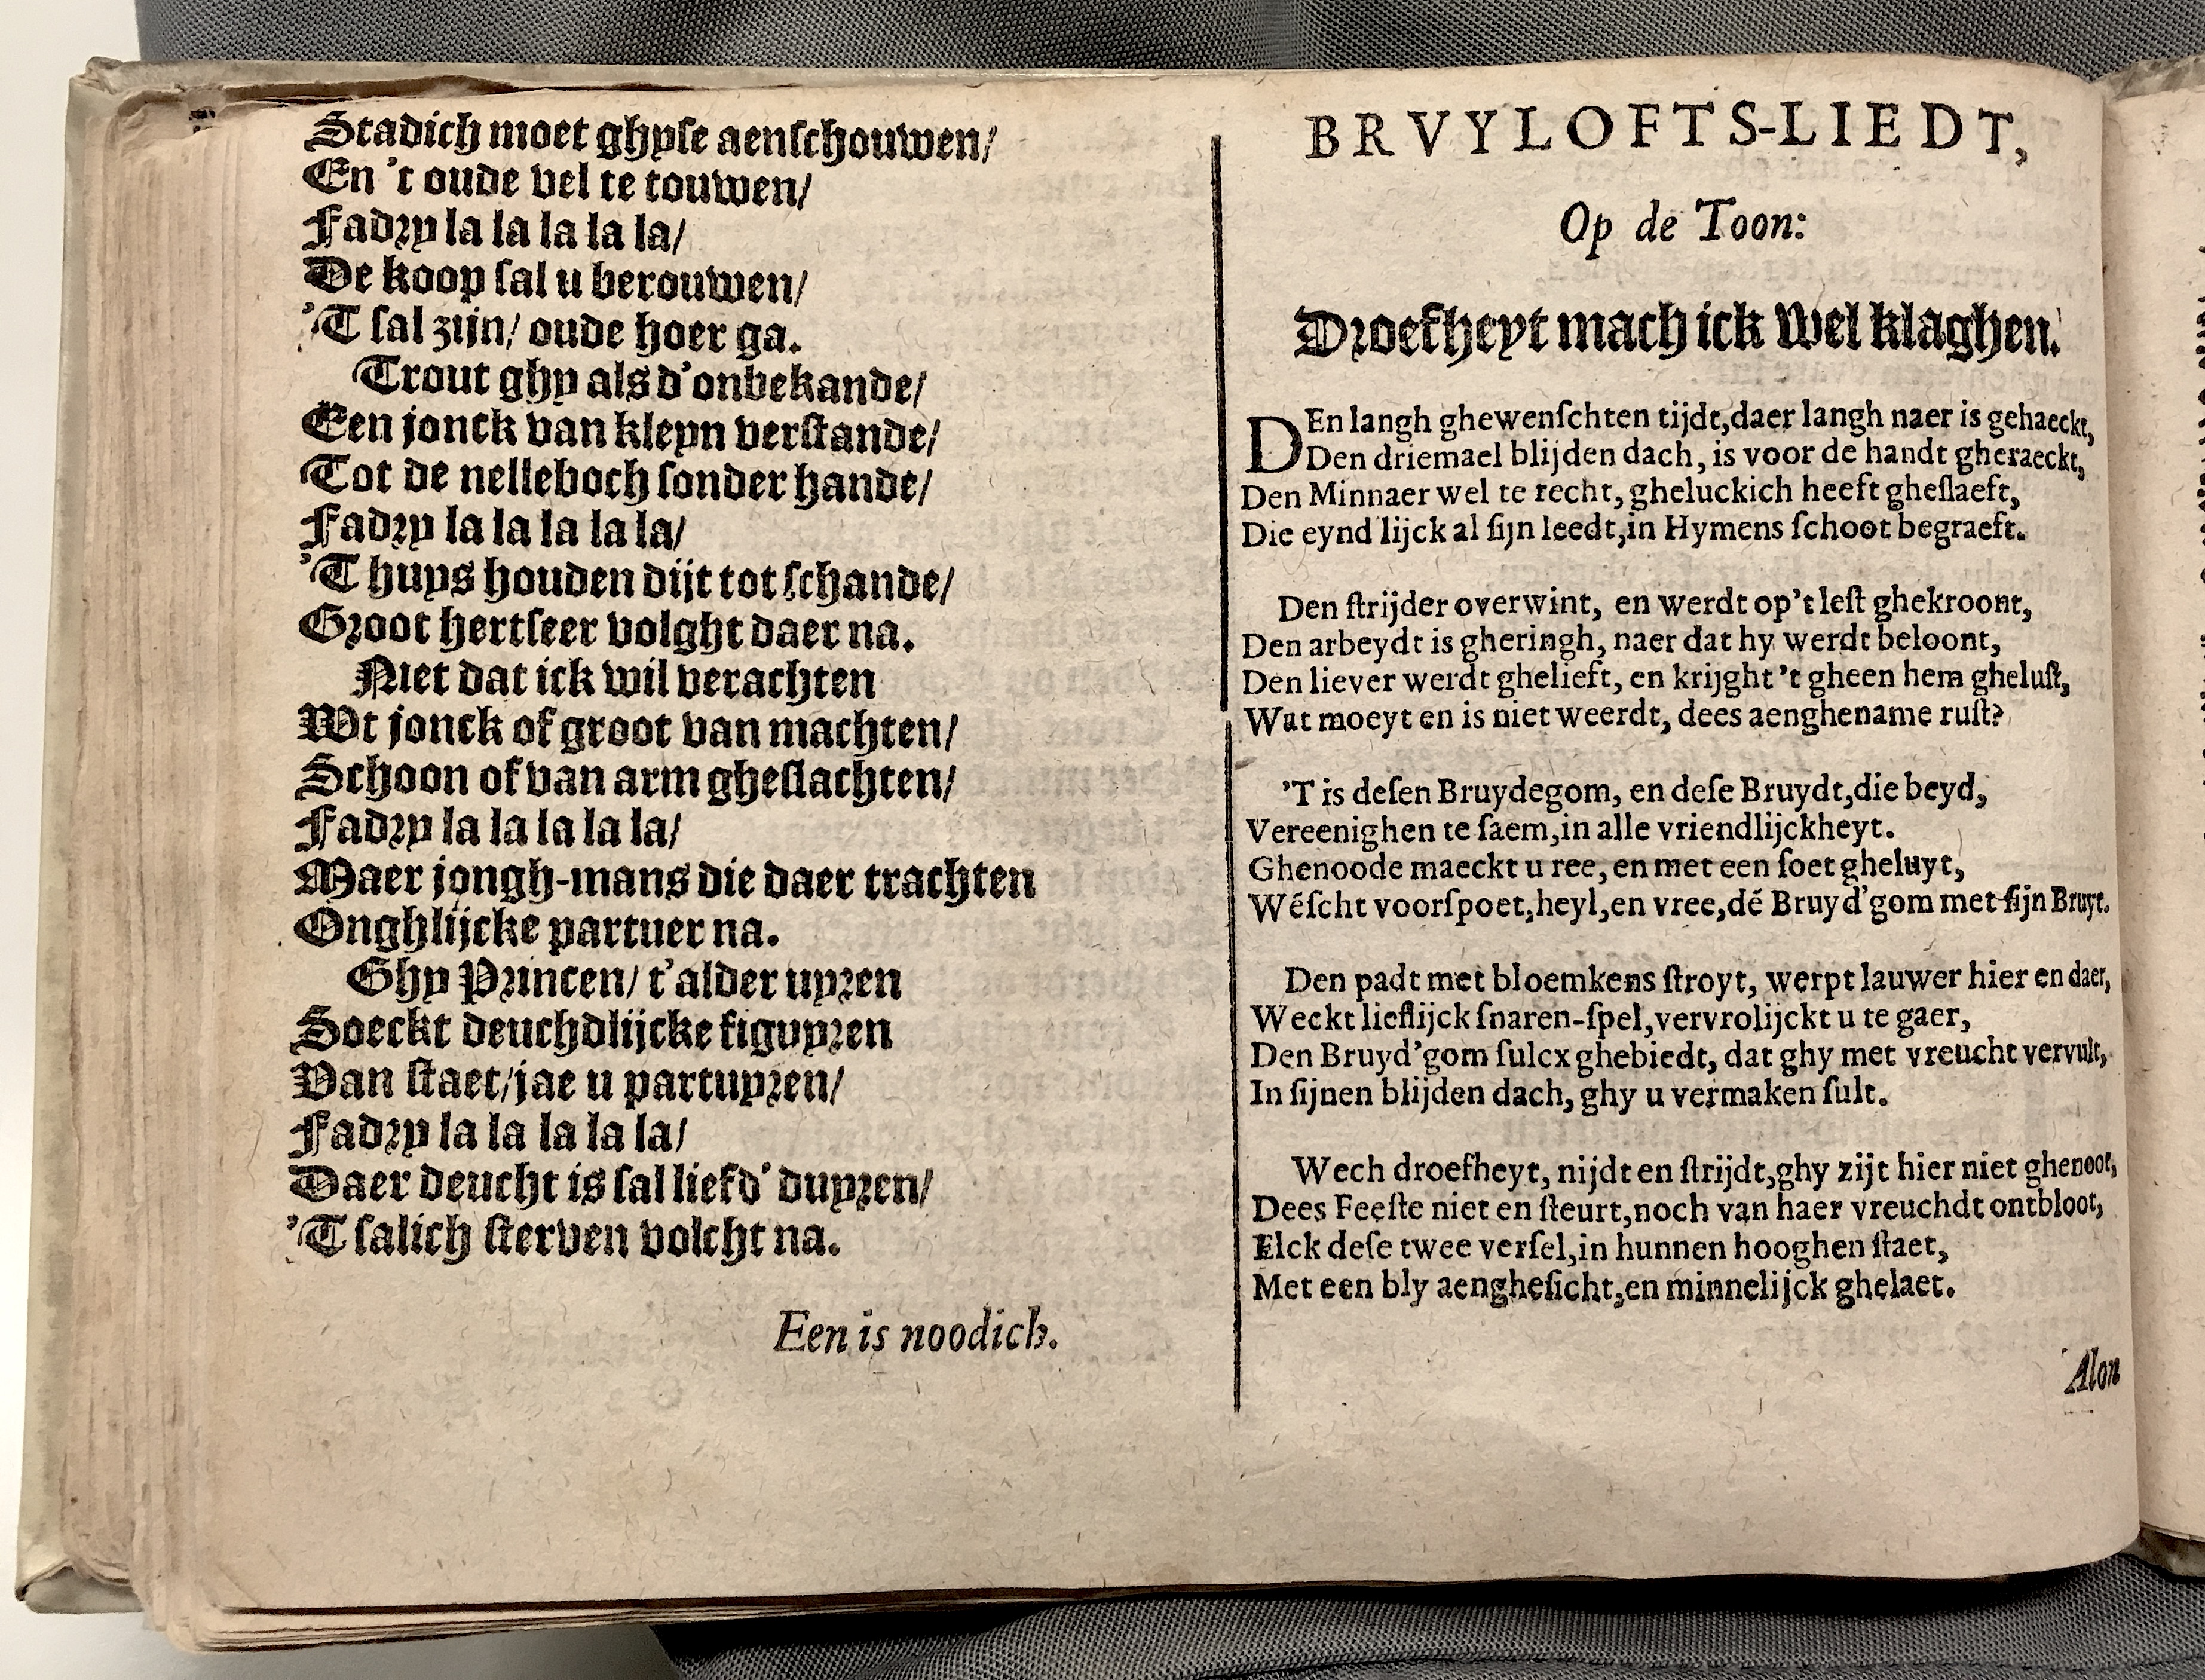 Stadich moet ghyse aenschouwen/
En 't oude vel te touwen/
Fadry la la la la la/
De koop sal u berouwen/
'T sal zijn/ oude hoer ga.
Trout ghy als d'onbekande/
Een jonck van kleyn verstande/
Tot de nelleboch sonder hande/
Fadry la la la la la/
'T huys houden dijt tot schande/
Groot hertseer volght daer na.
Niet dat ick wil verachten
Wt jonck of groot van machten/
Schoon of van arm gheslachten/
Fadry la la la la la/
Maer jongh-mans die daer trachten
Onghlijcke partuer na.
Ghy Princen/ t'alder uyren
Soeckt deuchdlijcke figuyren
Van staet/jae u partuyren/
Fadry la la la la la/
Daer deucht is sal liefd' duyren/
'T salich sterven volcht na.
Een is noodich.
BRVYLOFTS-LIEDT,
Op de Toon:
Droefheyt mach ick wel klaghen.
DEn langh ghewenschten tijdt,daer langh naer is gehaeckt,
Den driemael blijden dach, is voor de handt gheraeckt,
Den Minnaer wel te recht, gheluckich heeft gheslaeft,
Die eynd lijck al sijn leedt,in Hymens schoot begraeft.
Den strijder overwint, en werdt op't lest ghekroont,
Den arbeydt is gheringh, naer dat hy werdt beloont,
Den liever werdt ghelieft, en krijght 't gheen hem ghelust,
Wat moeyt en is niet weerdt, dees aenghename rust?
'T is desen Bruydegom, en dese Bruydt,die beyd,
Vereenighen te saem,in alle vriendlijckheyt.
Ghenoode maeckt u ree, en met een soet gheluyt,
Wéscht voorspoet,heyl,en vree,dé Bruyd'gom met sijn Bruyt.
Den padt met bloemkens stroyt, werpt lauwer hier en daer,
Weckt lieflijck snaren-spel,vervrolijckt u te gaer,
Den Bruyd'gom sulcx ghebiedt, dat ghy met vreucht vervult,
In sijnen blijden dach, ghy u vermaken sult.
Wech droefheyt, nijdt en strijdt,ghy zijt hier niet ghenoot,
Dees Feeste niet en steurt,noch van haer vreuchdt ontbloot,
Elck dese twee versel,in hunnen hooghen staet,
Met een bly aenghesicht,en minnelijck ghelaet.
Alon